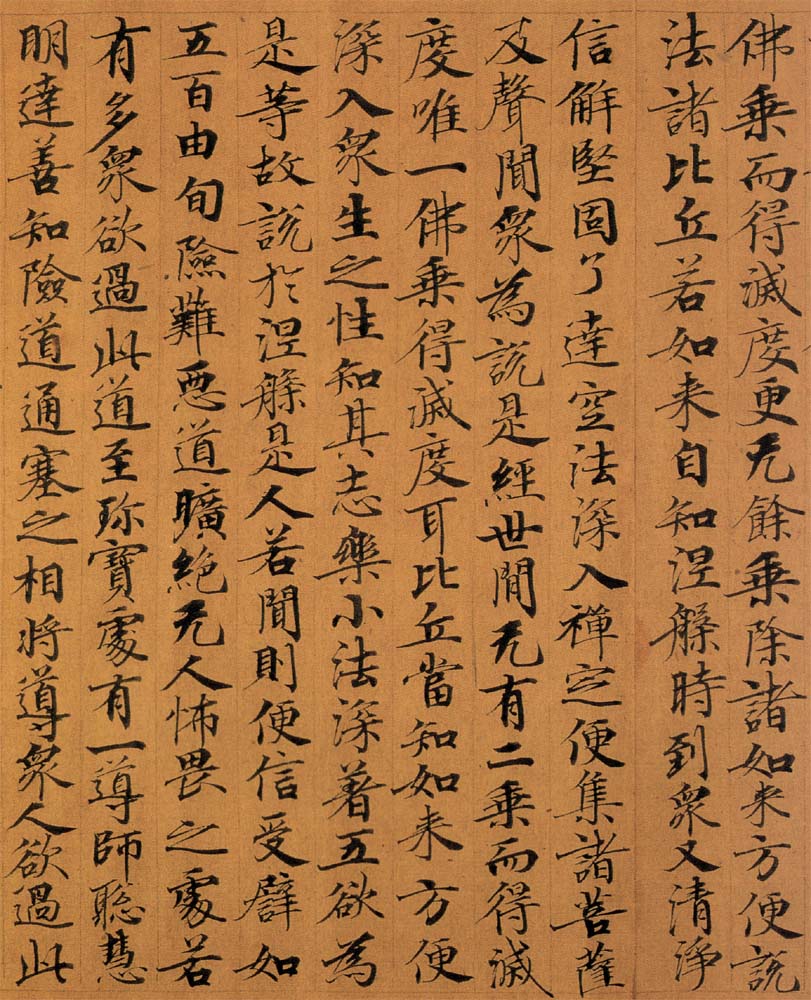 佛乗而得滅度更无餘乗除諸如来方便說
法諸比丘若如来自知涅槃時到衆又清淨
信解堅固了達空法深入禪定便集諸菩薩
及聲聞衆為說是經世間无有二乗而得滅
度唯一佛乗得滅度耳比丘當知如来方便
深入衆生之性知其志樂小法深著五欲為
是等故說於涅槃是人若聞則便信受譬如
五百由旬險難悪道曠絕无人怖畏之處若
有多衆欲過此道至珎寶處有一導師聡慧
明達善知險道通塞之相將導衆人欲過此